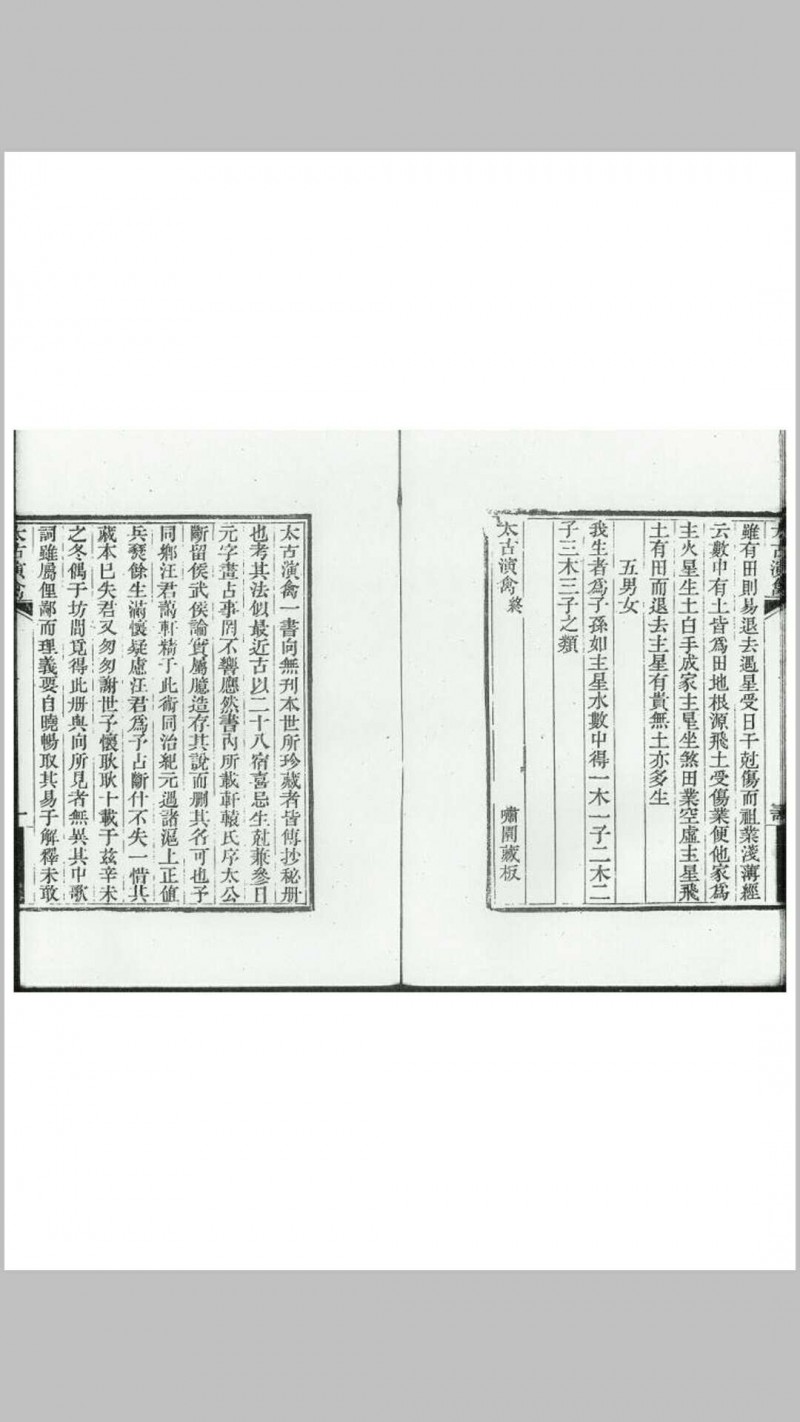 太古演禽
雖有田則易退去遇星受日干尅傷而祖業淺薄經
云數中有土皆爲田地根源飛土受傷業便他家爲
主火星生土白手成家主星坐煞田業空虛主星飛
土有田而退去主星有貴無土亦多生
五男女
我生者爲子孫如主星水數中得一木一子二木二
子三木三子之類
太古演禽終
嘯園藏板
太古演禽一書向無刊本世所珍藏者皆傳抄秘册
也考其法似最近古以二十八宿喜忌生尅兼參日
元字畫占事罔不響應然書內所載軒轅氏序太公
斷留侯武侯論實屬臆造存其說而删其名可也予
同鄉汪君藹軒精于此術同治紀元遇諸滬上正値
兵燹餘生滿懷疑慮汪君爲予占斷什不失一惜其
藏本已失君又匆匆謝世予懷耿耿十載于玆辛未
之冬偶于坊間覓得此册與向所見者無異其中歌
詞雖屬俚鄙而理義要自曉暢取其易于解釋未敢
太古演禽
一